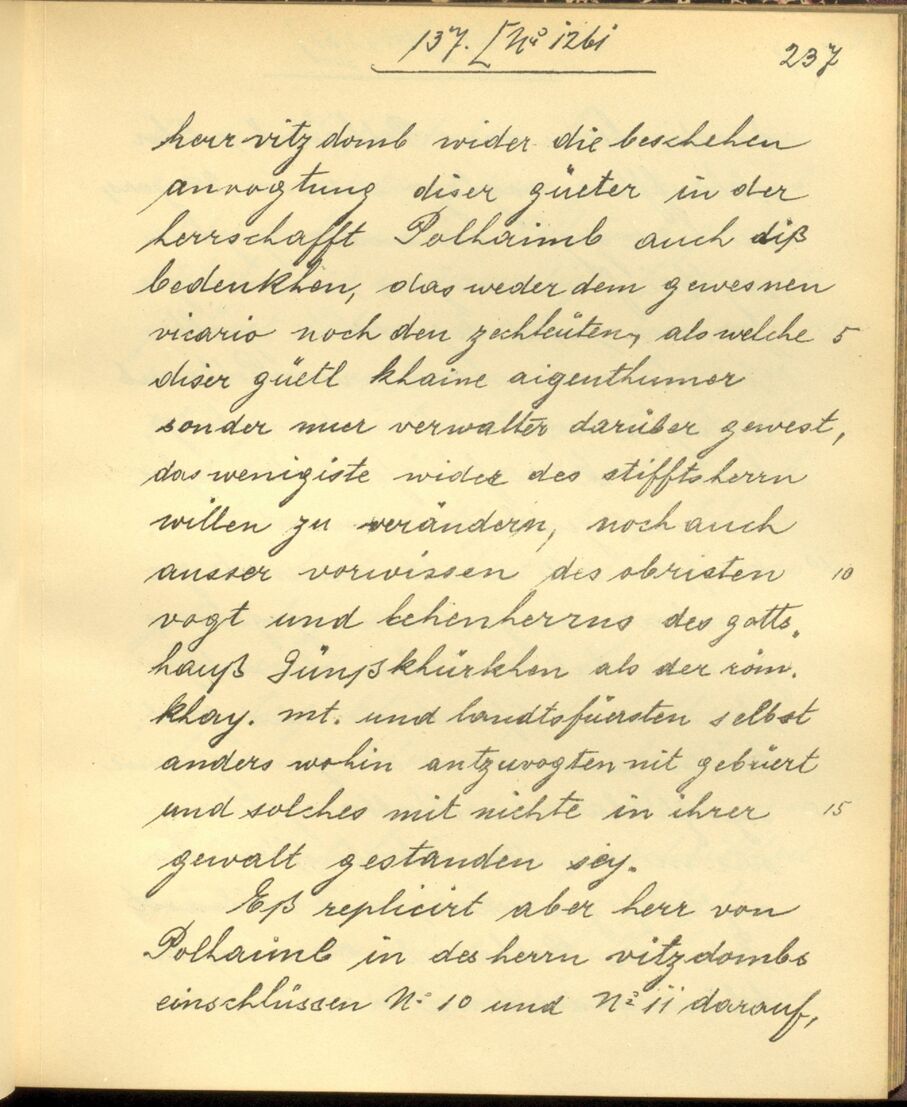 137. [No 126]
237
herr vitzdomb wider die beschehen
anvogtung diser güeter in der
herrschafft Polhaimb auch diß
bedenkhen, das weder dem gewesnen
vicario noch den zechleüten, als welche 5
diser güetl khaine aigenthumer
sonder nuer verwalter darüber gewest,
das wenigiste wider des stifftsherrn
willen zu verändern, noch auch
ausser vorwissen des obristen 10
vogt und lehenherrns des gotts„
hauß Günßkhürkhen als der röm.
khay. mt. und landtsfüersten selbst
anders wohin antzuvogten nit gebüert
und solches mit nichte in ihrer 15
gewalt gestanden sey.
Eß replicirt aber herr von
Polhaimb in des herrn vitzdombs
einschlüssen No 10 und No 11 darauf,